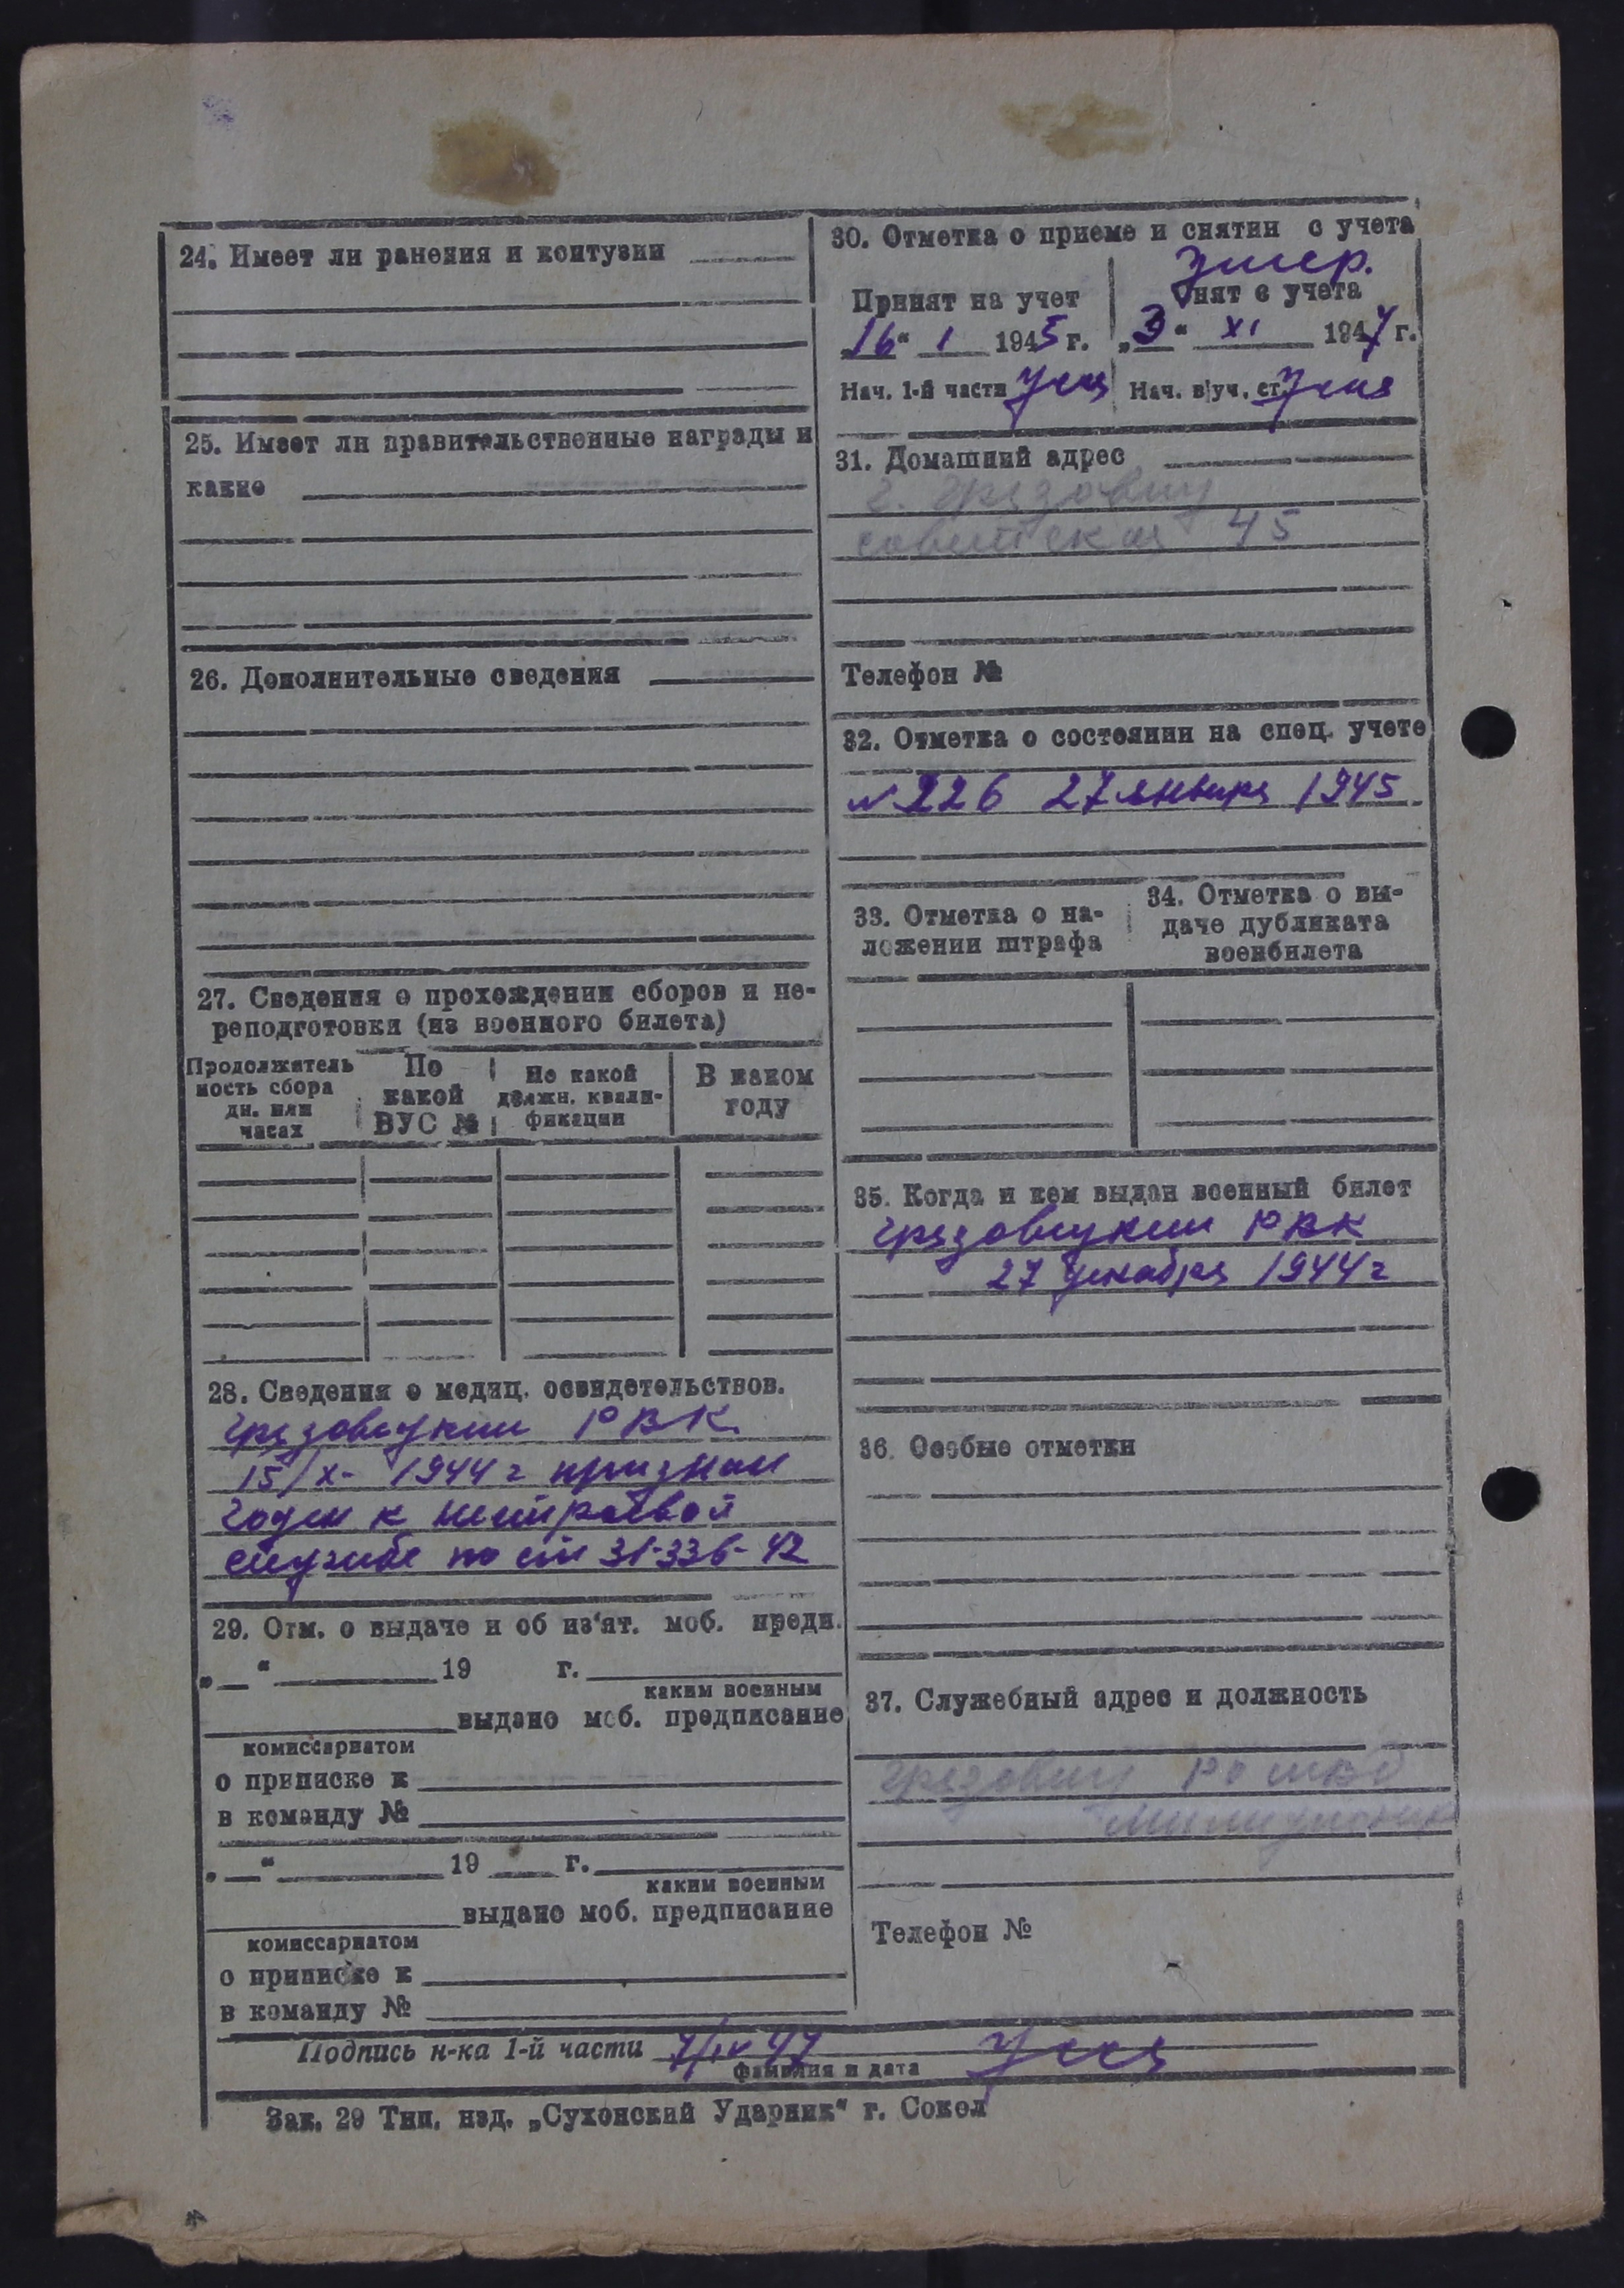 24. Имеет ли ранения и контузии
25. Имеет ли правительственные награды и
какие
26. Дополнительные сведения
27. Сведения о прохождении сборов и пе-
реподготовки (из военного билета)
Продолжитель
ность сбора
дн. или
часах
По
какой
ВУС №
По какой
должн. квали-
фикации
В каком
году
28. Сведения о медиц. освидетельствов.
Грязовецким РВК
15/X- 1944 г признан
годен к нестроевой
службе по ст 31-336-42
29. Отм. о выдаче и об из'ят. моб. предп.
„ “ 19 г.
каким военным
выдано моб. предписание
комиссариатом
о приписке к
в команду №
„ “ 19 г.
каким военным
выдано моб. предписание
комиссариатом
о приписке к
в команду №
30. Отметка о приеме и снятии с учета
Умер.
Принят на учет
„16“ I 1945 г.
Нач. 1-й части
Снят с учета
„3“ XI 1947 г.
Нач. в|уч. ст.
31. Домашний адрес
г. Грязовец
советская 45
Телефон №
32. Отметка о состоянии на спец. учете
№ 226 27 января 1945
33. Отметка о на-
ложении штрафа
34. Отметка о вы-
даче дубликата
военбилета
35. Когда и кем выдан военный билет
Грязовецким РВК
27 декабря 1944 г
36. Особые отметки
37. Служебный адрес и должность
Грязовец РО МВД
милиционер
Телефон №
Подпись н-ка 1-й части 7/IV 47
фамилия и дата
Зак. 29 Тип. изд. „Сухонский Ударник“ г. Сокол